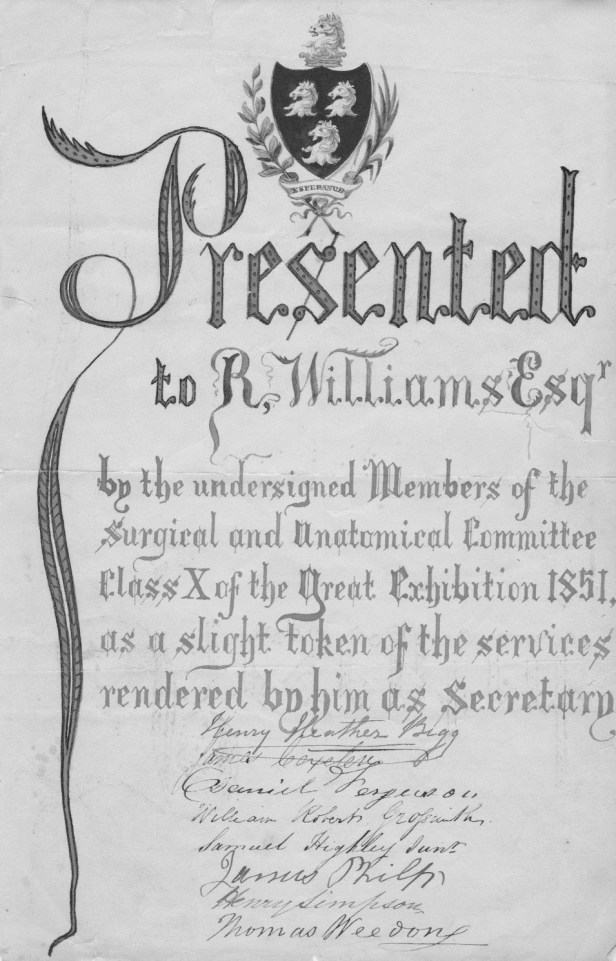 ESPERANCE
Presented
to R, Williams Esqr
by the undersigned Members of the
Surgical and Anatomical Committee
Class X of the Great Exhibition 1851.
as a slight token of the services
rendered by him as Secretary
Henry Heather Bigg
James Coxeter
Daniel Ferguson
William Robert
Samuel Highley Junr
James Philp
Henry Simpson
Thomas Weedon